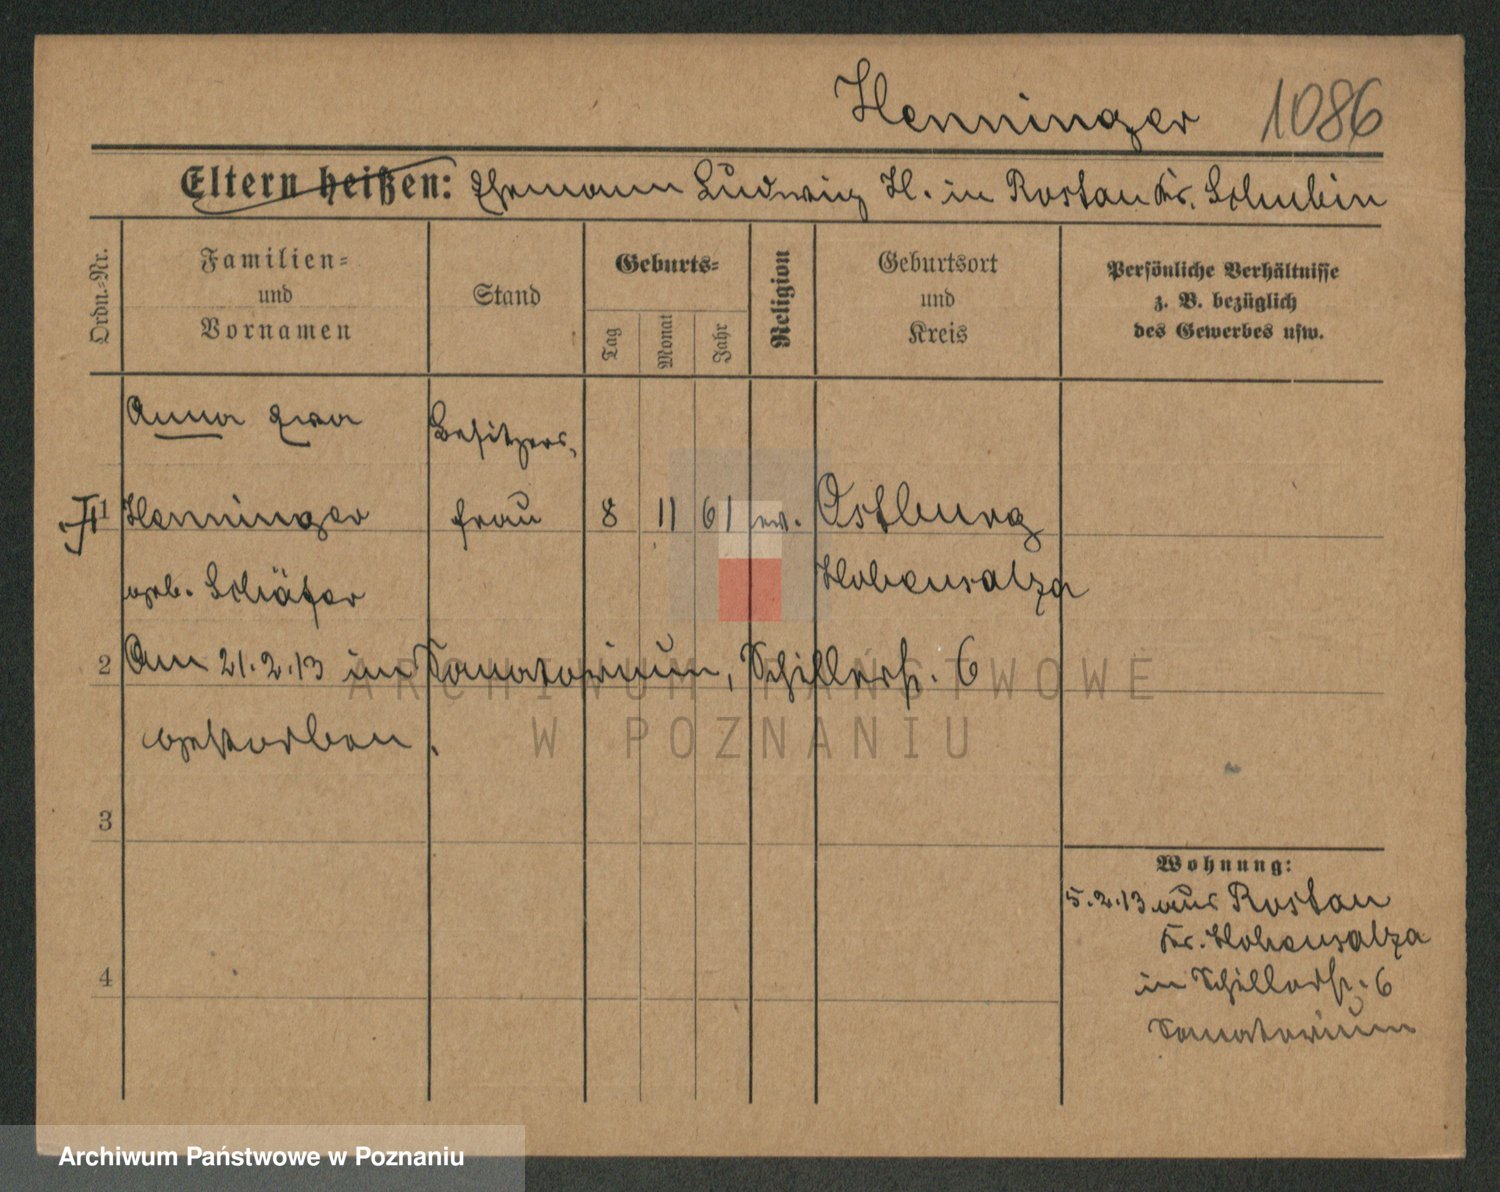 Henninger 1086
Eltern heißen: Ehemann Ludwig H. in Rostau Kr. Schubin
Ordn.-Nr.
Familien-
und
Vornamen
Stand
Geburts-
Tag
Monat
Jahr
Religion
Geburtsort
und
Kreis
Persönliche Verhältnisse
z. B. bezüglich
des Gewerbes usw.
Anna Eva Besitzers,
1 Henninger frau 8 11 61 ev. Ostburg
geb. Schäfer Hohensalza
2 Am 21.2.13 im Sanatorium, Schillerstr. 6
gestorben.
3
4
Wohnung:
5.2.13 aus Rostau
Kr. Hohensalza
in Schillerstr. 6
Sanatorium
ARCHIWUM PAŃSTWOWE
W POZNANIU
Archiwum Państwowe w Poznaniu